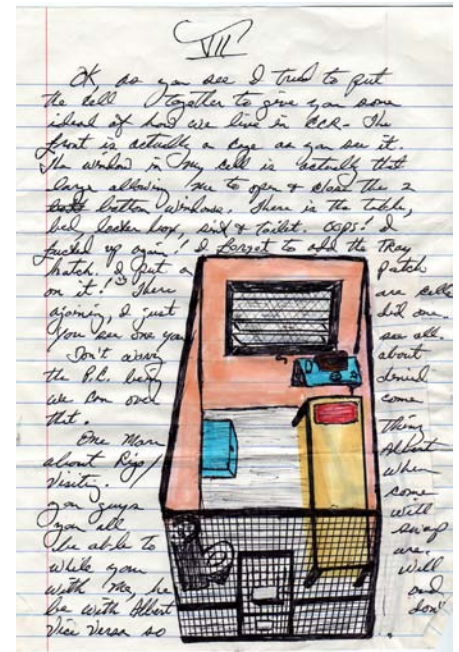 VII
OK, as you see I tried to put
the cell together to give you some
ideal of how we live in CCR- The
front is actually a cage as you see it.
The window in my cell is actually that
large allowing me to open & close the 2
bottom windows. There is the table,
bed, locker box, sink & toilet. OOPS! I
fucked up again! I forget to add the Tray
hatch. I put a Patch
on it! There are cells
ajoning, I just did one.
You see one you see all.
Don't worry about
the P.C. being denied
we can over come
that.
One More thing
about Rigo/ Albert
Visiting. When
you guys come
you all will
be able to swap
while you are.
with me, he will
be with Albert and
Vice Versa so don't
.